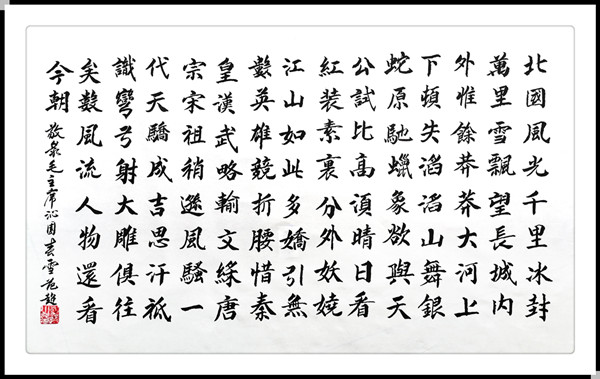 北國風光千里冰封
萬里雪飄望長城内
外惟餘莽莽大河上
下頓失滔滔山舞銀
蛇原馳蠟象欲與天
公試比高須晴日看
紅装素裹分外妖嬈
江山如此多嬌引無
數英雄競折腰惜秦
皇漢武略輸文綵唐
宗宋祖稍遜風騷一
代天驕成吉思汗祗
識彎弓射大雕俱往
矣數風流人物還看
今朝
敬录毛主席沁园春雪